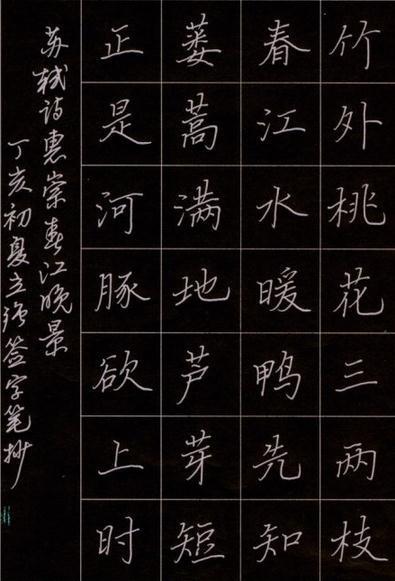 竹外桃花三两枝
春江水暖鸭先知
蒌蒿满地芦芽短
正是河豚欲上时
苏轼诗惠崇春江晚景
丁亥初夏立强签字笔抄